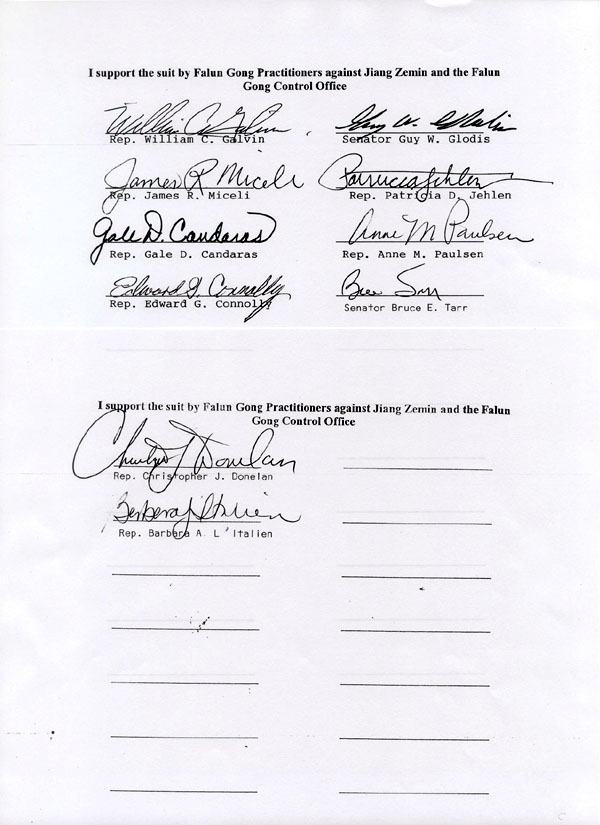 I support the suit by Falun Gong Practitioners against Jiang Zemin and the Falun
Gong Control Office
William C. Galvin
Rep. William C. Galvin
Guy W. Glodis
Senator Guy W. Glodis
James R Miceli
Rep. James R. Miceli
Patricia Jehlen
Rep. Patricia D. Jehlen
Gale D. Candaras
Rep. Gale D. Candaras
Anne M Paulsen
Rep. Anne M. Paulsen
Edward G. Connolly
Rep. Edward G. Connolly
Bruce Tarr
Senator Bruce E. Tarr
I support the suit by Falun Gong Practitioners against Jiang Zemin and the Falun
Gong Control Office
Christopher J Donelan
Rep. Christopher J. Donelan
Barbara L'Italien
Rep. Barbara A. L'Italien